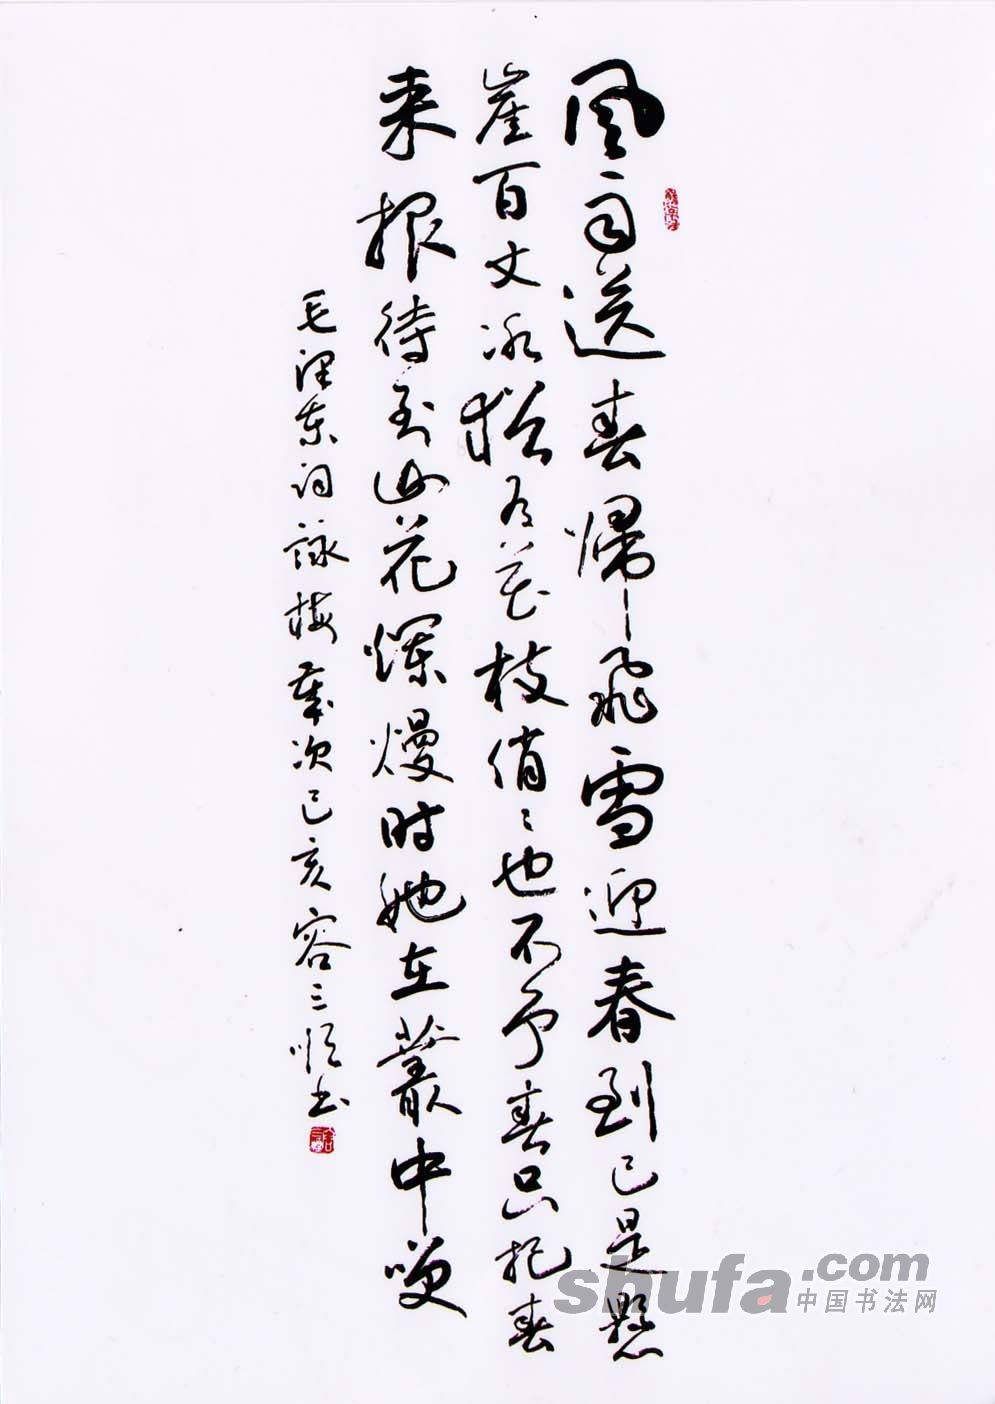 风雨送春歸飛雪迎春到已是懸
崖百丈冰猶有花枝俏〻也不争春只把春
来报待到山花爛熳时她在叢中咲
毛泽东词詠梅歲次己亥容三顺书
shufa.com
中国书法网